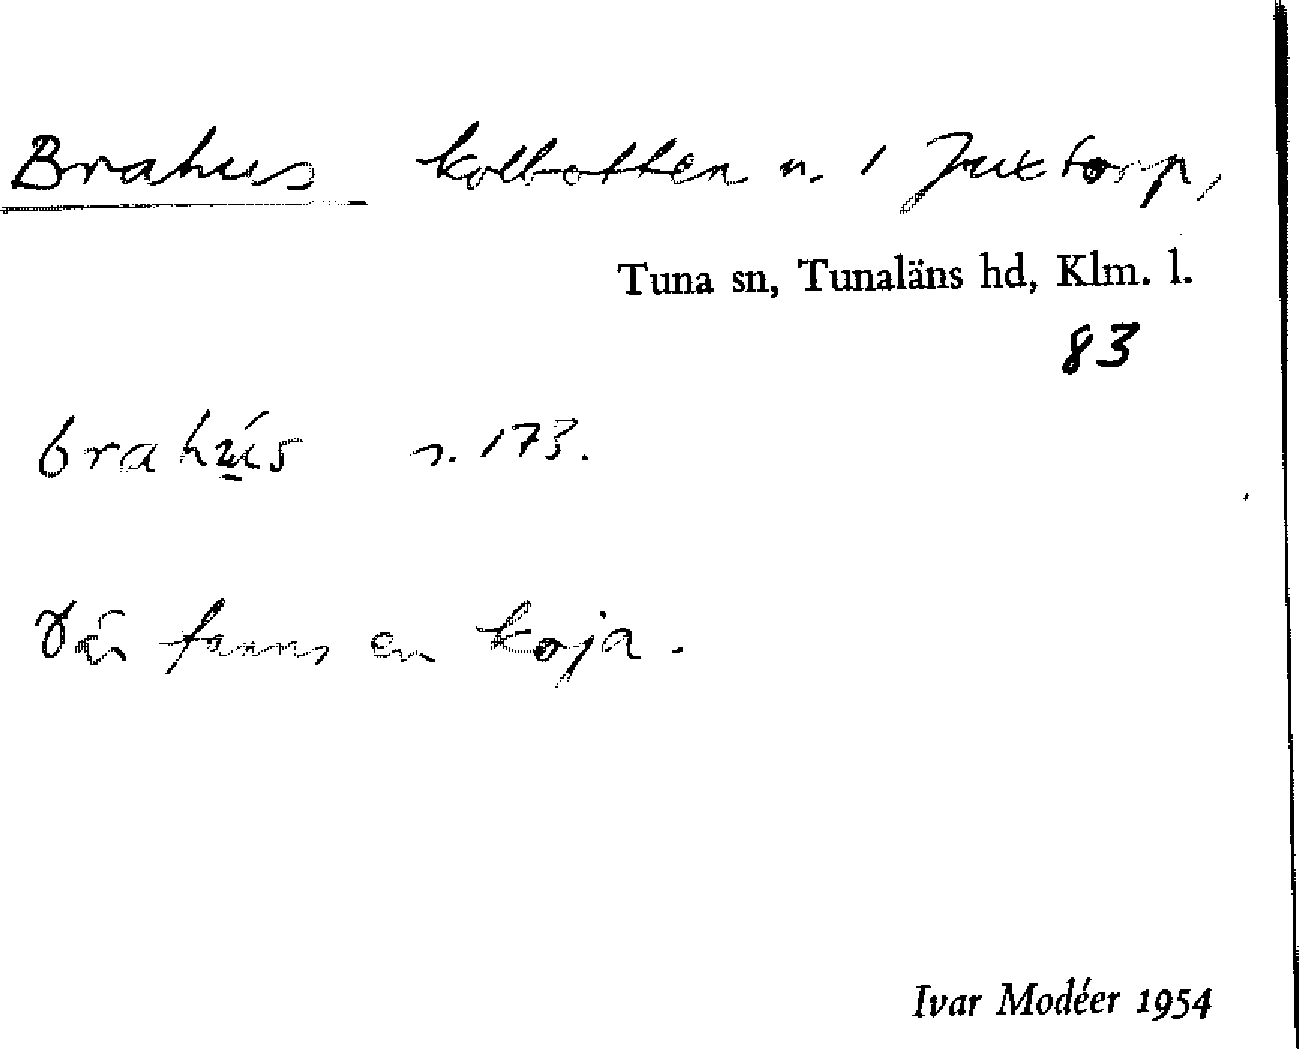 Brahus kolbotten n. 1 Juxtorp,
Tuna sn, Tunaläns hd, Klm. l.
83
brahú̲s s. 173.
Där fanns en koja.
Ivar Modéer 1954